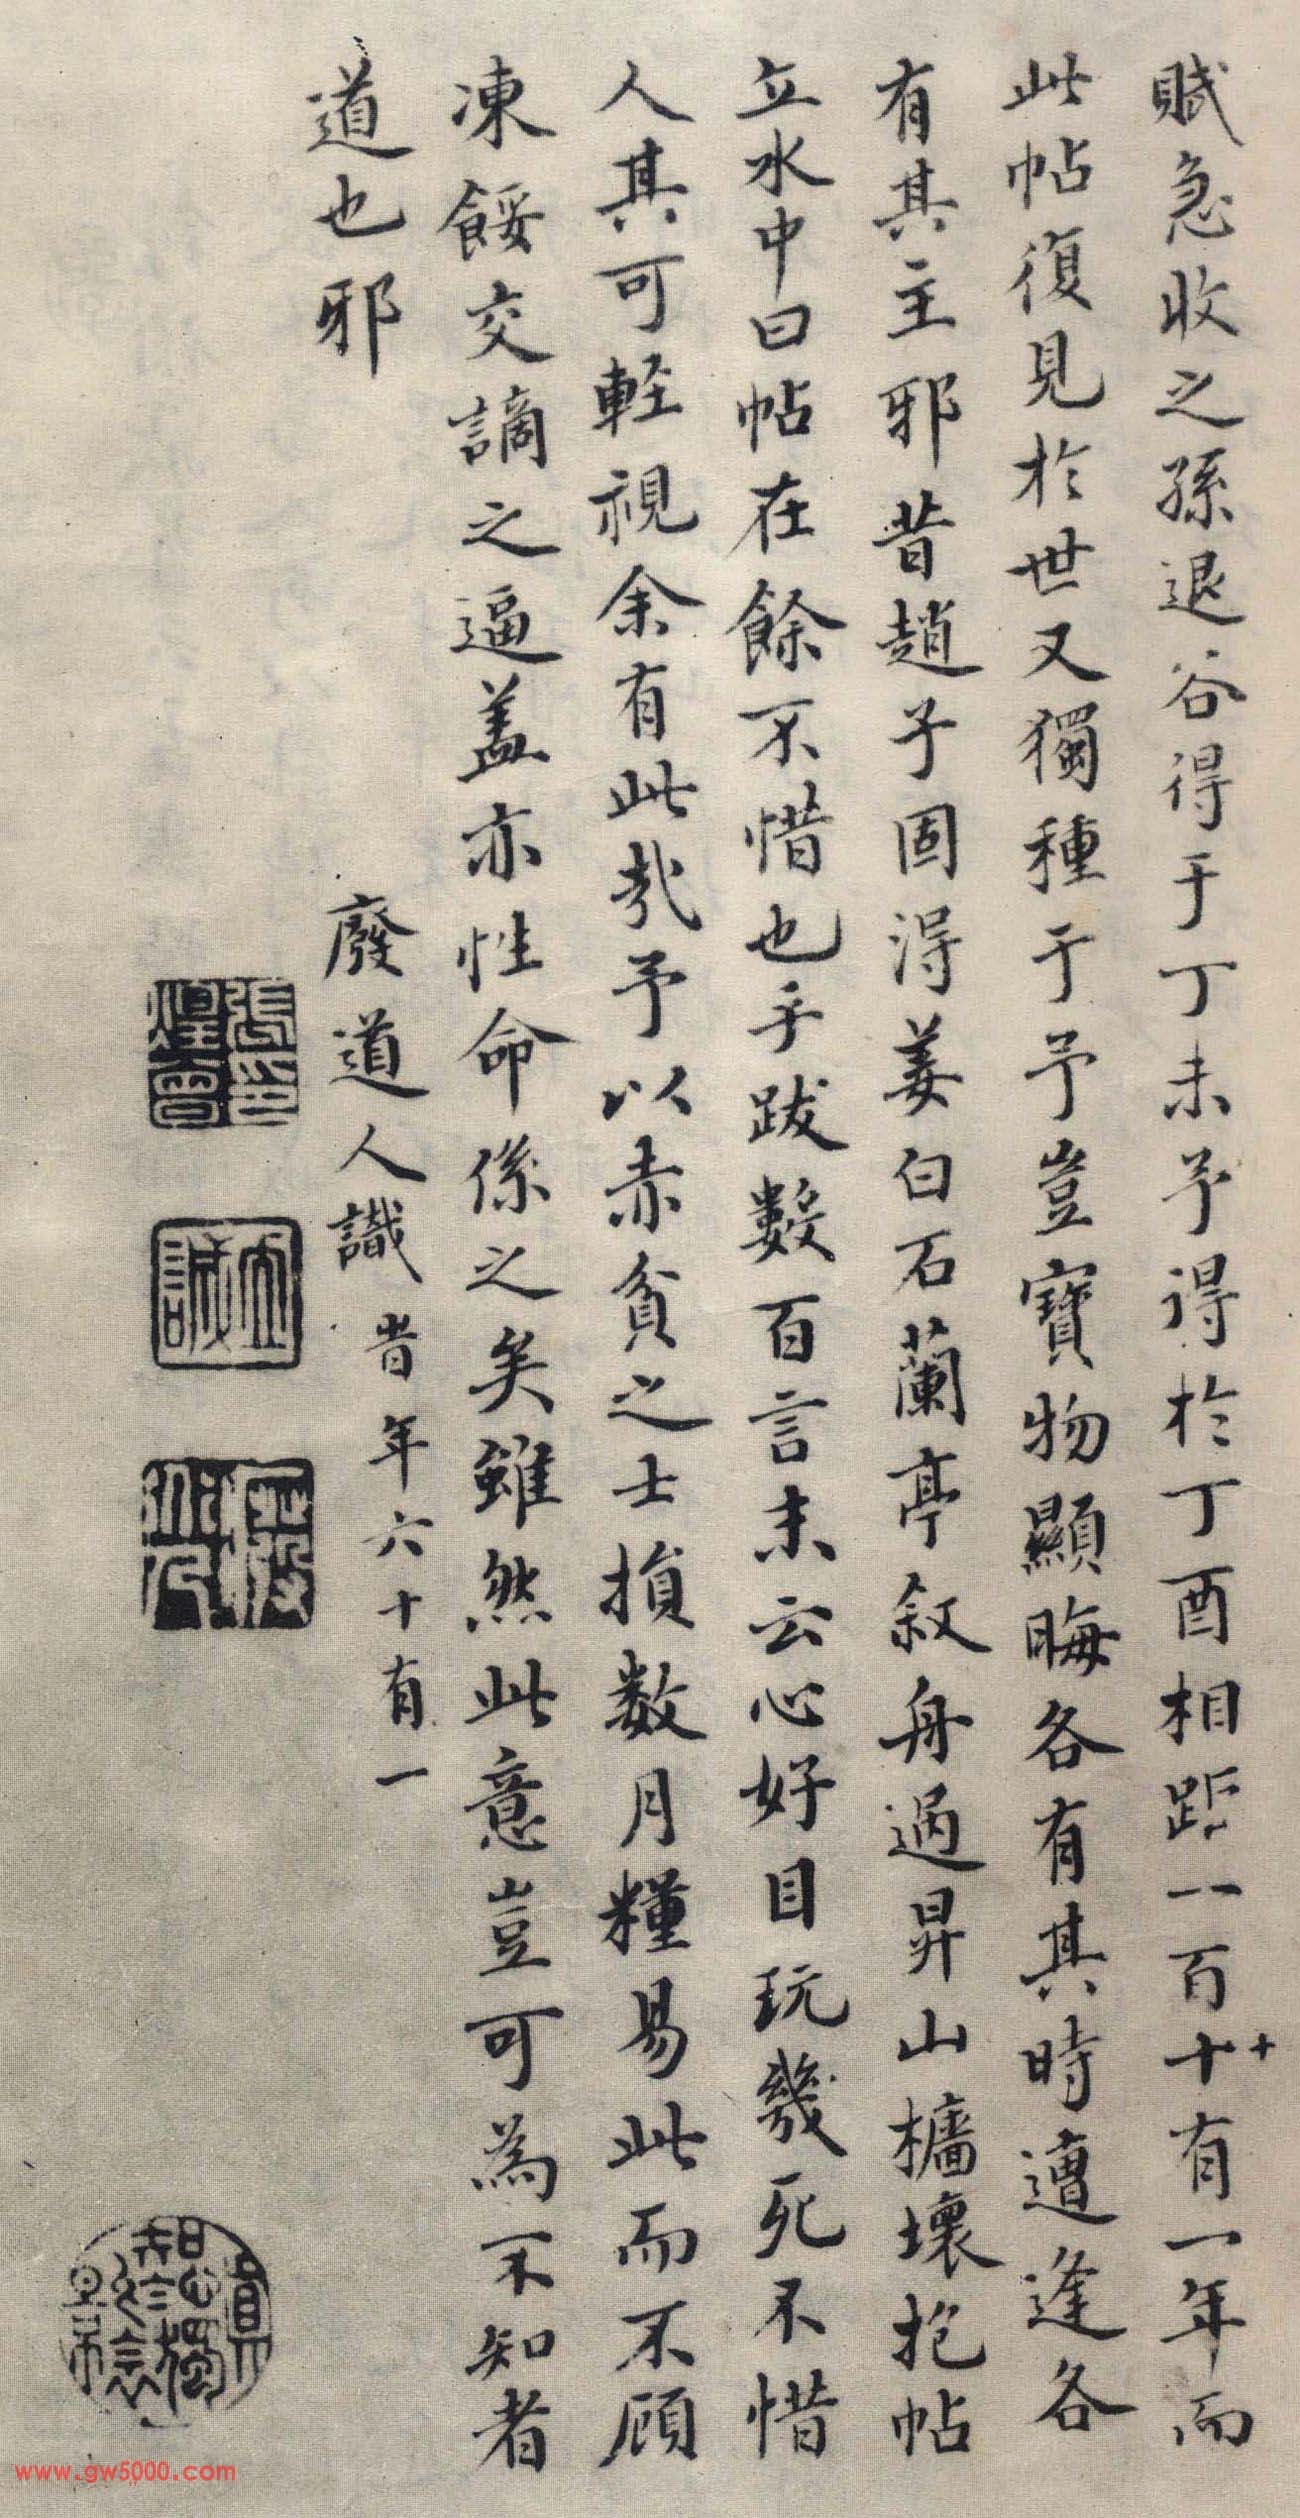 賦急收之孫退谷得于丁未予得於丁酉相距一百十有一年而
十
此帖復見於世又獨種于予豈寶物顯晦各有其時遭逢各
有其主邪昔趙子固得姜白石蘭亭叙舟過昇山檣壞抱帖
立水中曰帖在餘不惜也手跋數百言末云心好目玩幾死不惜
人其可輕視余有此哉予以赤貧之士損数月糧易此而不顧
凍餒交謫之逼盖亦性命係之矣雖然此意豈可為不知者
道也邪
廢道人識 昔年六十有一
www.gw5000.com